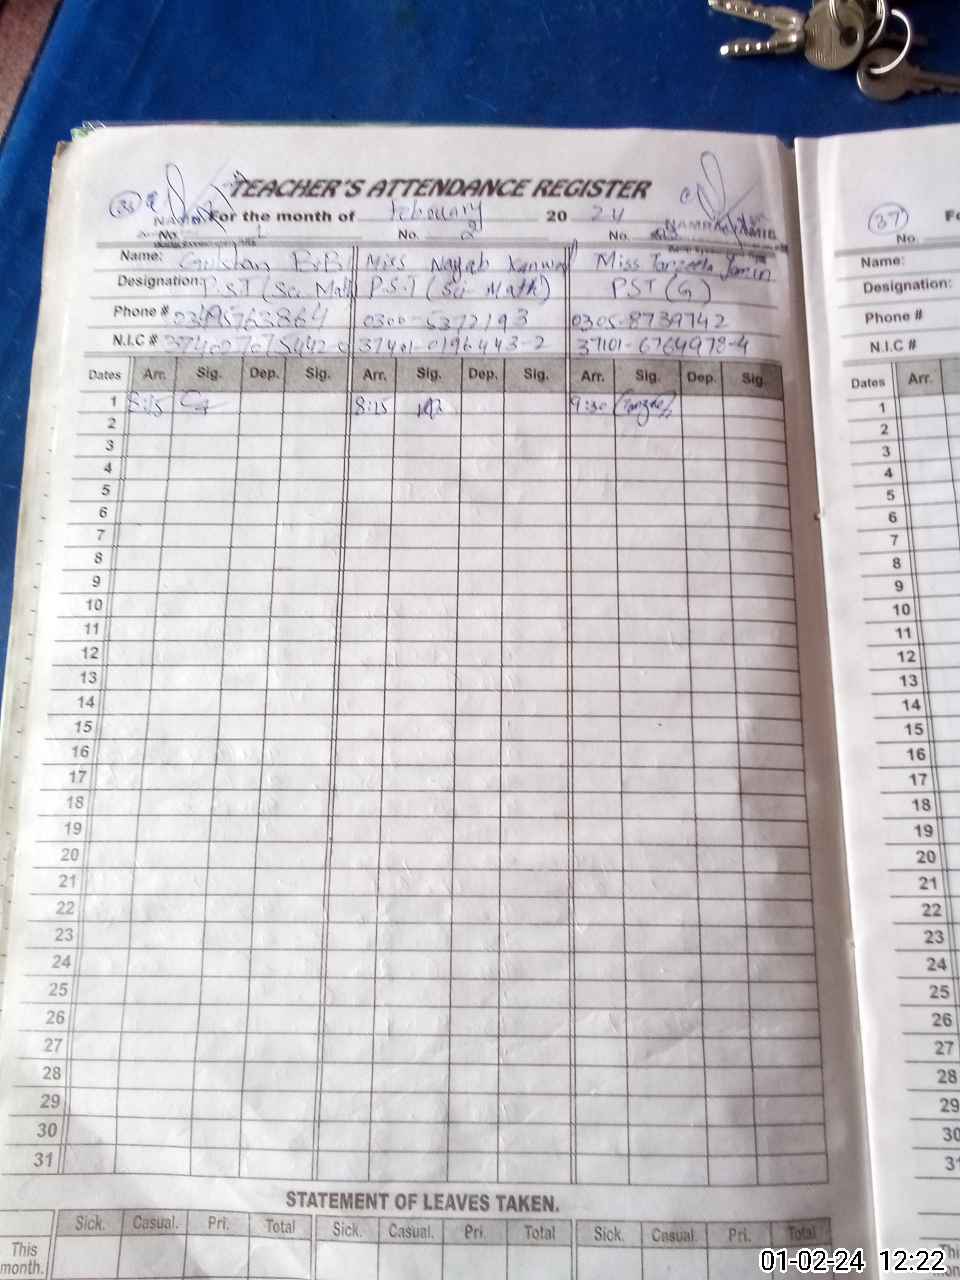 TEACHER'S ATTENDANCE REGISTER
For the month of February 20 24
No. 1 No. 2 No.
Name: Gulshan BiBi Miss Nayab Kanwal Miss Tanzeela Yamin
Designation: P.S.T (Sci Math P.S.T (Sci Math) PST (G)
Phone # 0300-5372193 0305-8739742
N.I.C # 37401-0196443-2 37101-6764978-4
Dates Arr. Sig. Dep. Sig. Arr. Sig. Dep. Sig. Arr. Sig. Dep. Sig.
1 8:15 8:15 9:30
2
3
4
5
6
7
8
9
10
11
12
13
14
15
16
17
18
19
20
21
22
23
24
25
26
27
28
29
30
31
STATEMENT OF LEAVES TAKEN.
Sick. Casual. Pri. Total Sick. Casual. Pri. Total Sick. Casual. Pri. Total
This
month.
37
No.
Name:
Designation:
Phone #
N.I.C #
Dates Arr.
1
2
3
4
5
6
7
8
9
10
11
12
13
14
15
16
17
18
19
20
21
22
23
24
25
26
27
28
29
30
31
01-02-24 12:22